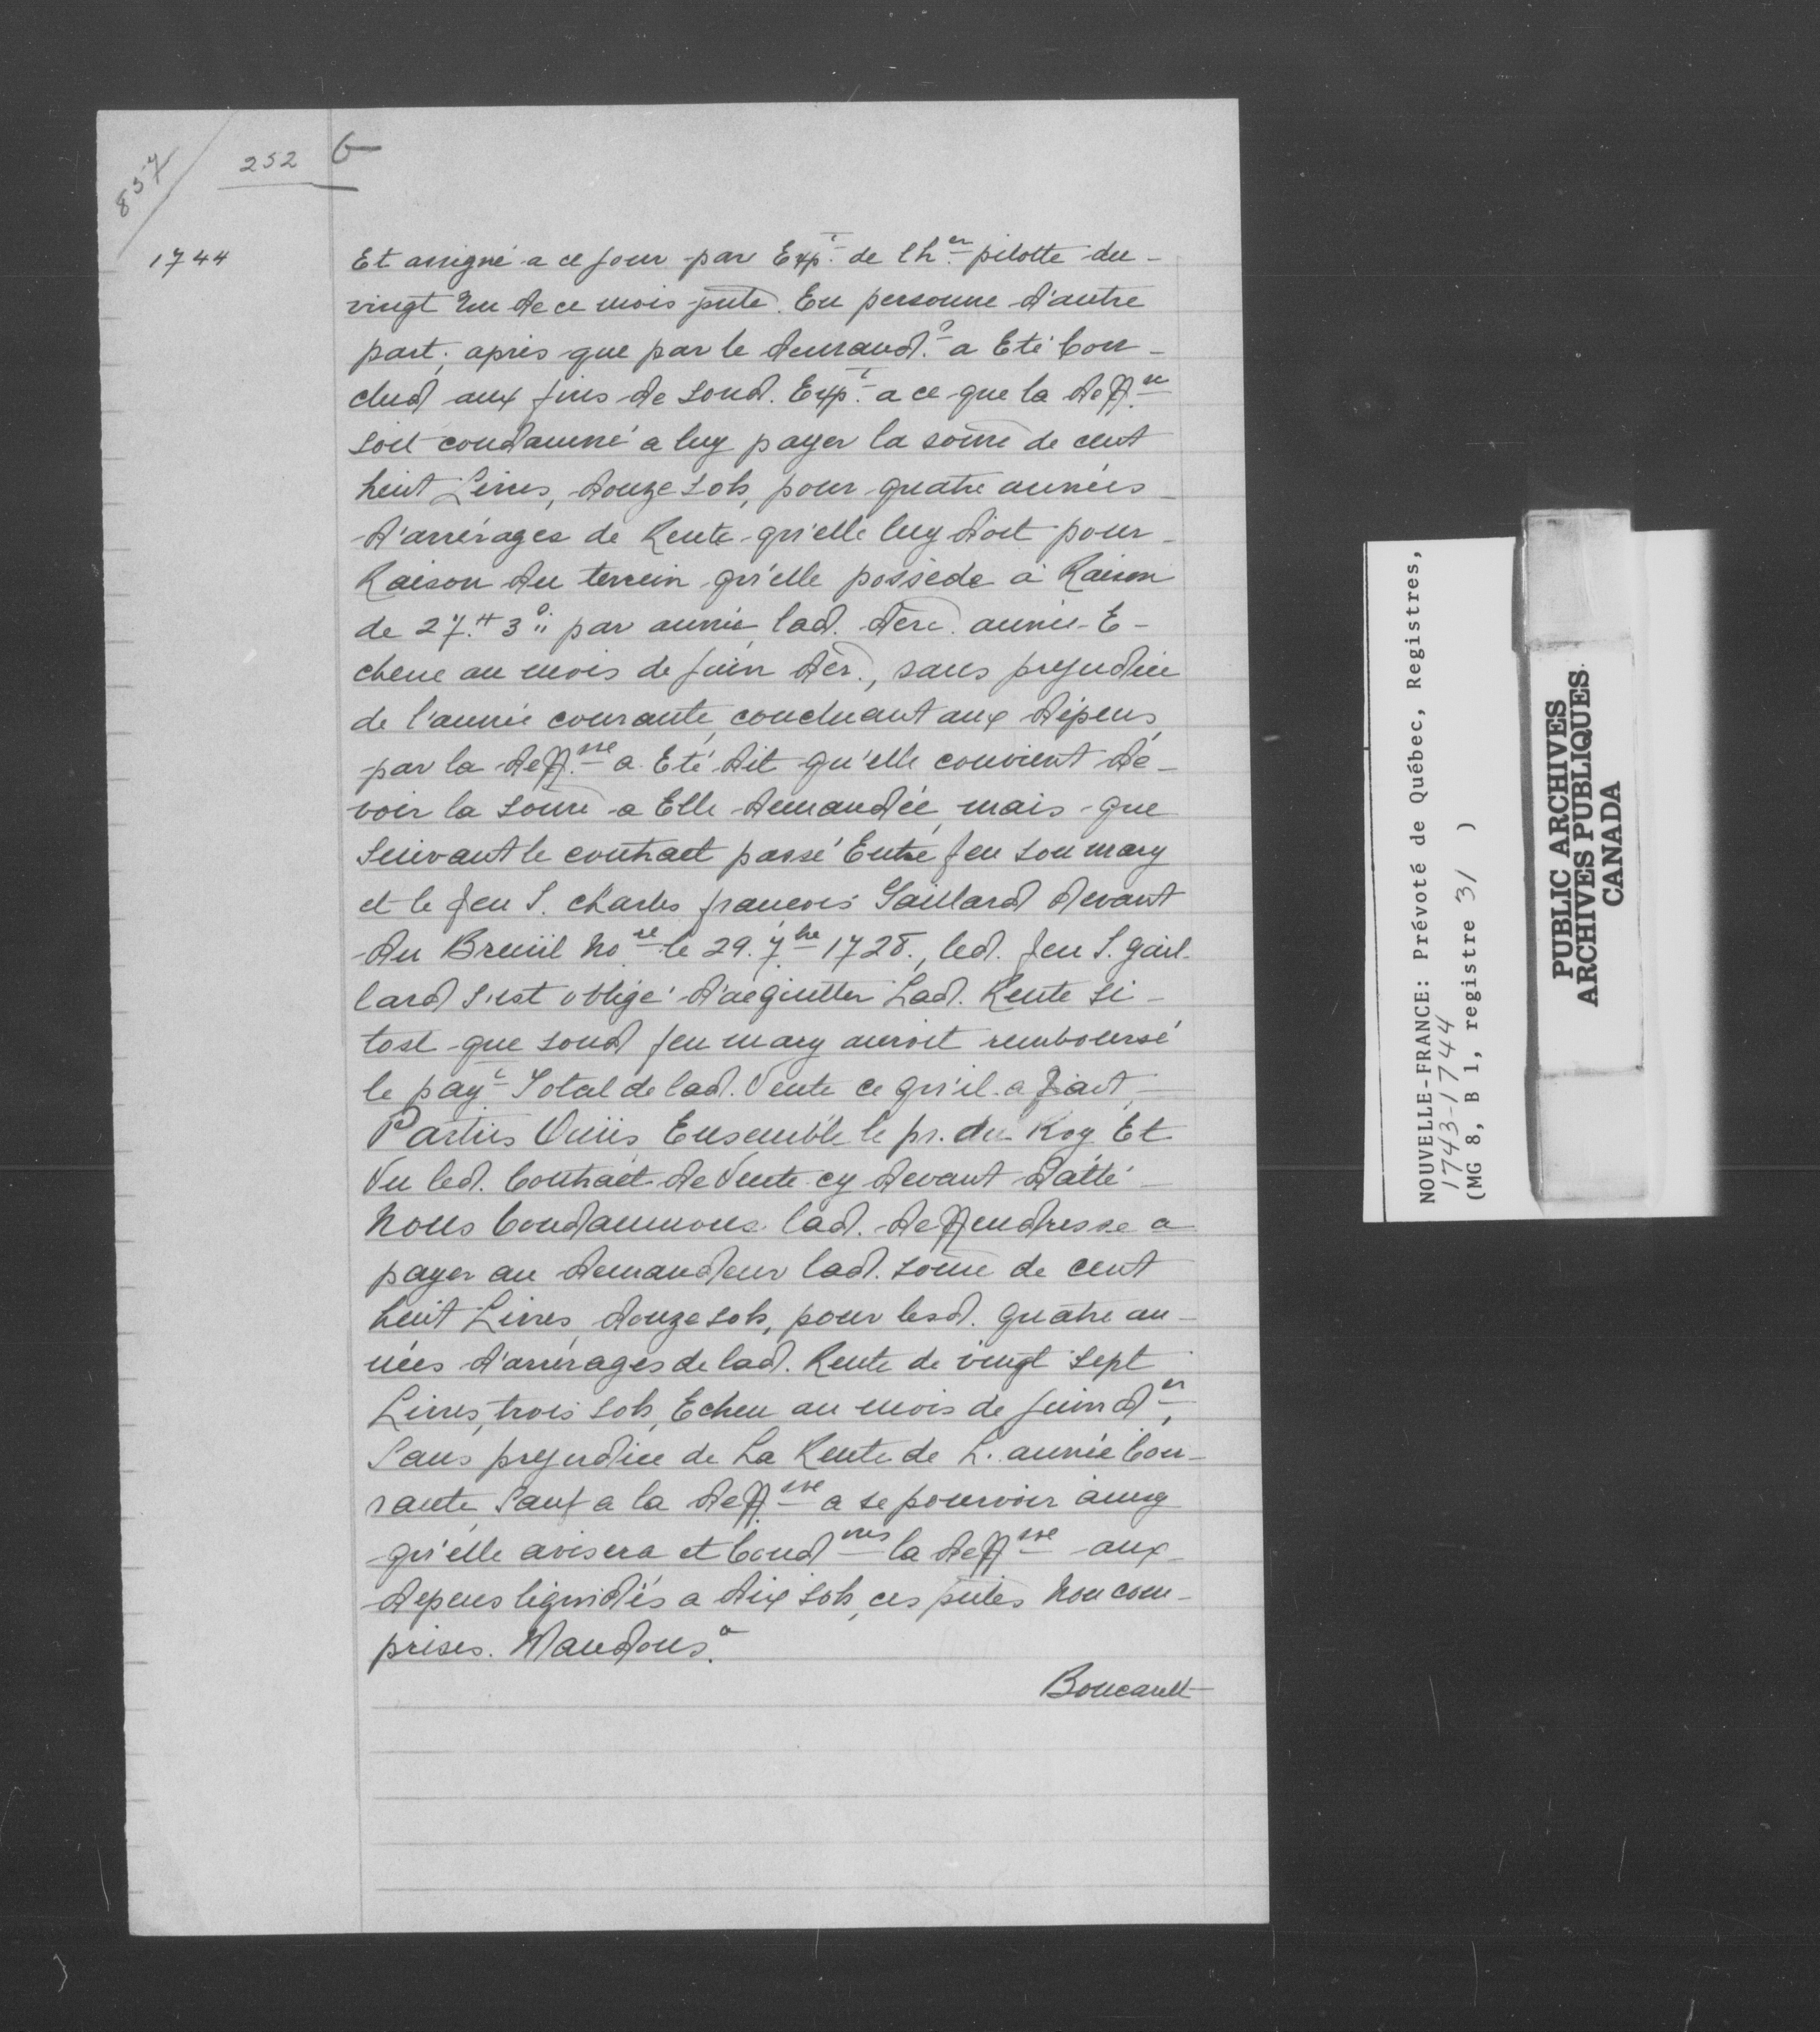 837
252
1744
Et assigné a ce jour par Exp.t de lh.er pilotte du
vingt un de ce mois pnte. En personne d'autre
part; après que par le demand.r a Eté Con-
clud aux fins de sond. Exp.t a ce que la deff.se
soit condamné a luy payer la some de cent
huit Livres, douze sols, pour quatre années
d'arrérages de Rente qu'elle luy doit pour
Raison du terrein qu'elle possède à Raison
de 27.tt 3s par année, lad. dere. année E-
cheue au mois de juin der., sans prejudice
de l'année courante, concluant aux dépens,
par la deff.sse a Eté dit qu'elle convient de-
voir la some a Elle demandée, mais que
suivant le contract passé Entre feu son mary
et le feu S. charles françois Gaillard devant
du Breuil No.re le 29. 7.bre 1728., led. feu S. gail-
lard s'est obligé d'acquitter Lad. Rente si-
tost que sond feu mary auroit remboursé
le pay.t Total de lad. Vente ce qu'il a fait,
Parties Ouies Ensemble le pr. du Roy Et
Vu led. Contract de Vente cy devant datté
Nous Condamnons lad. deffendresse a
payer au demandeur lad. some de cent
huit Livres, douze sols, pour lesd. quatre an-
nées d'arrérages de lad. Rente de vingt sept
Livres, trois sols, Echeu au mois de juin d.er,
Sans prejudice de La Rente de L'année Cou-
rante, Sauf a la deff.sse a se pourvoir ainsy
qu'elle avisera et Cond.ons la deff.sse aux
depens liquidés a dix sols, ces pntes Non com-
prises. Mandons.a
Boucault
NOUVELLE-FRANCE: Prévoté de Québec, Registres,
1743-1744
(MG 8, B 1, registre 31 )
PUBLIC ARCHIVES
ARCHIVES PUBLIQUES
CANADA